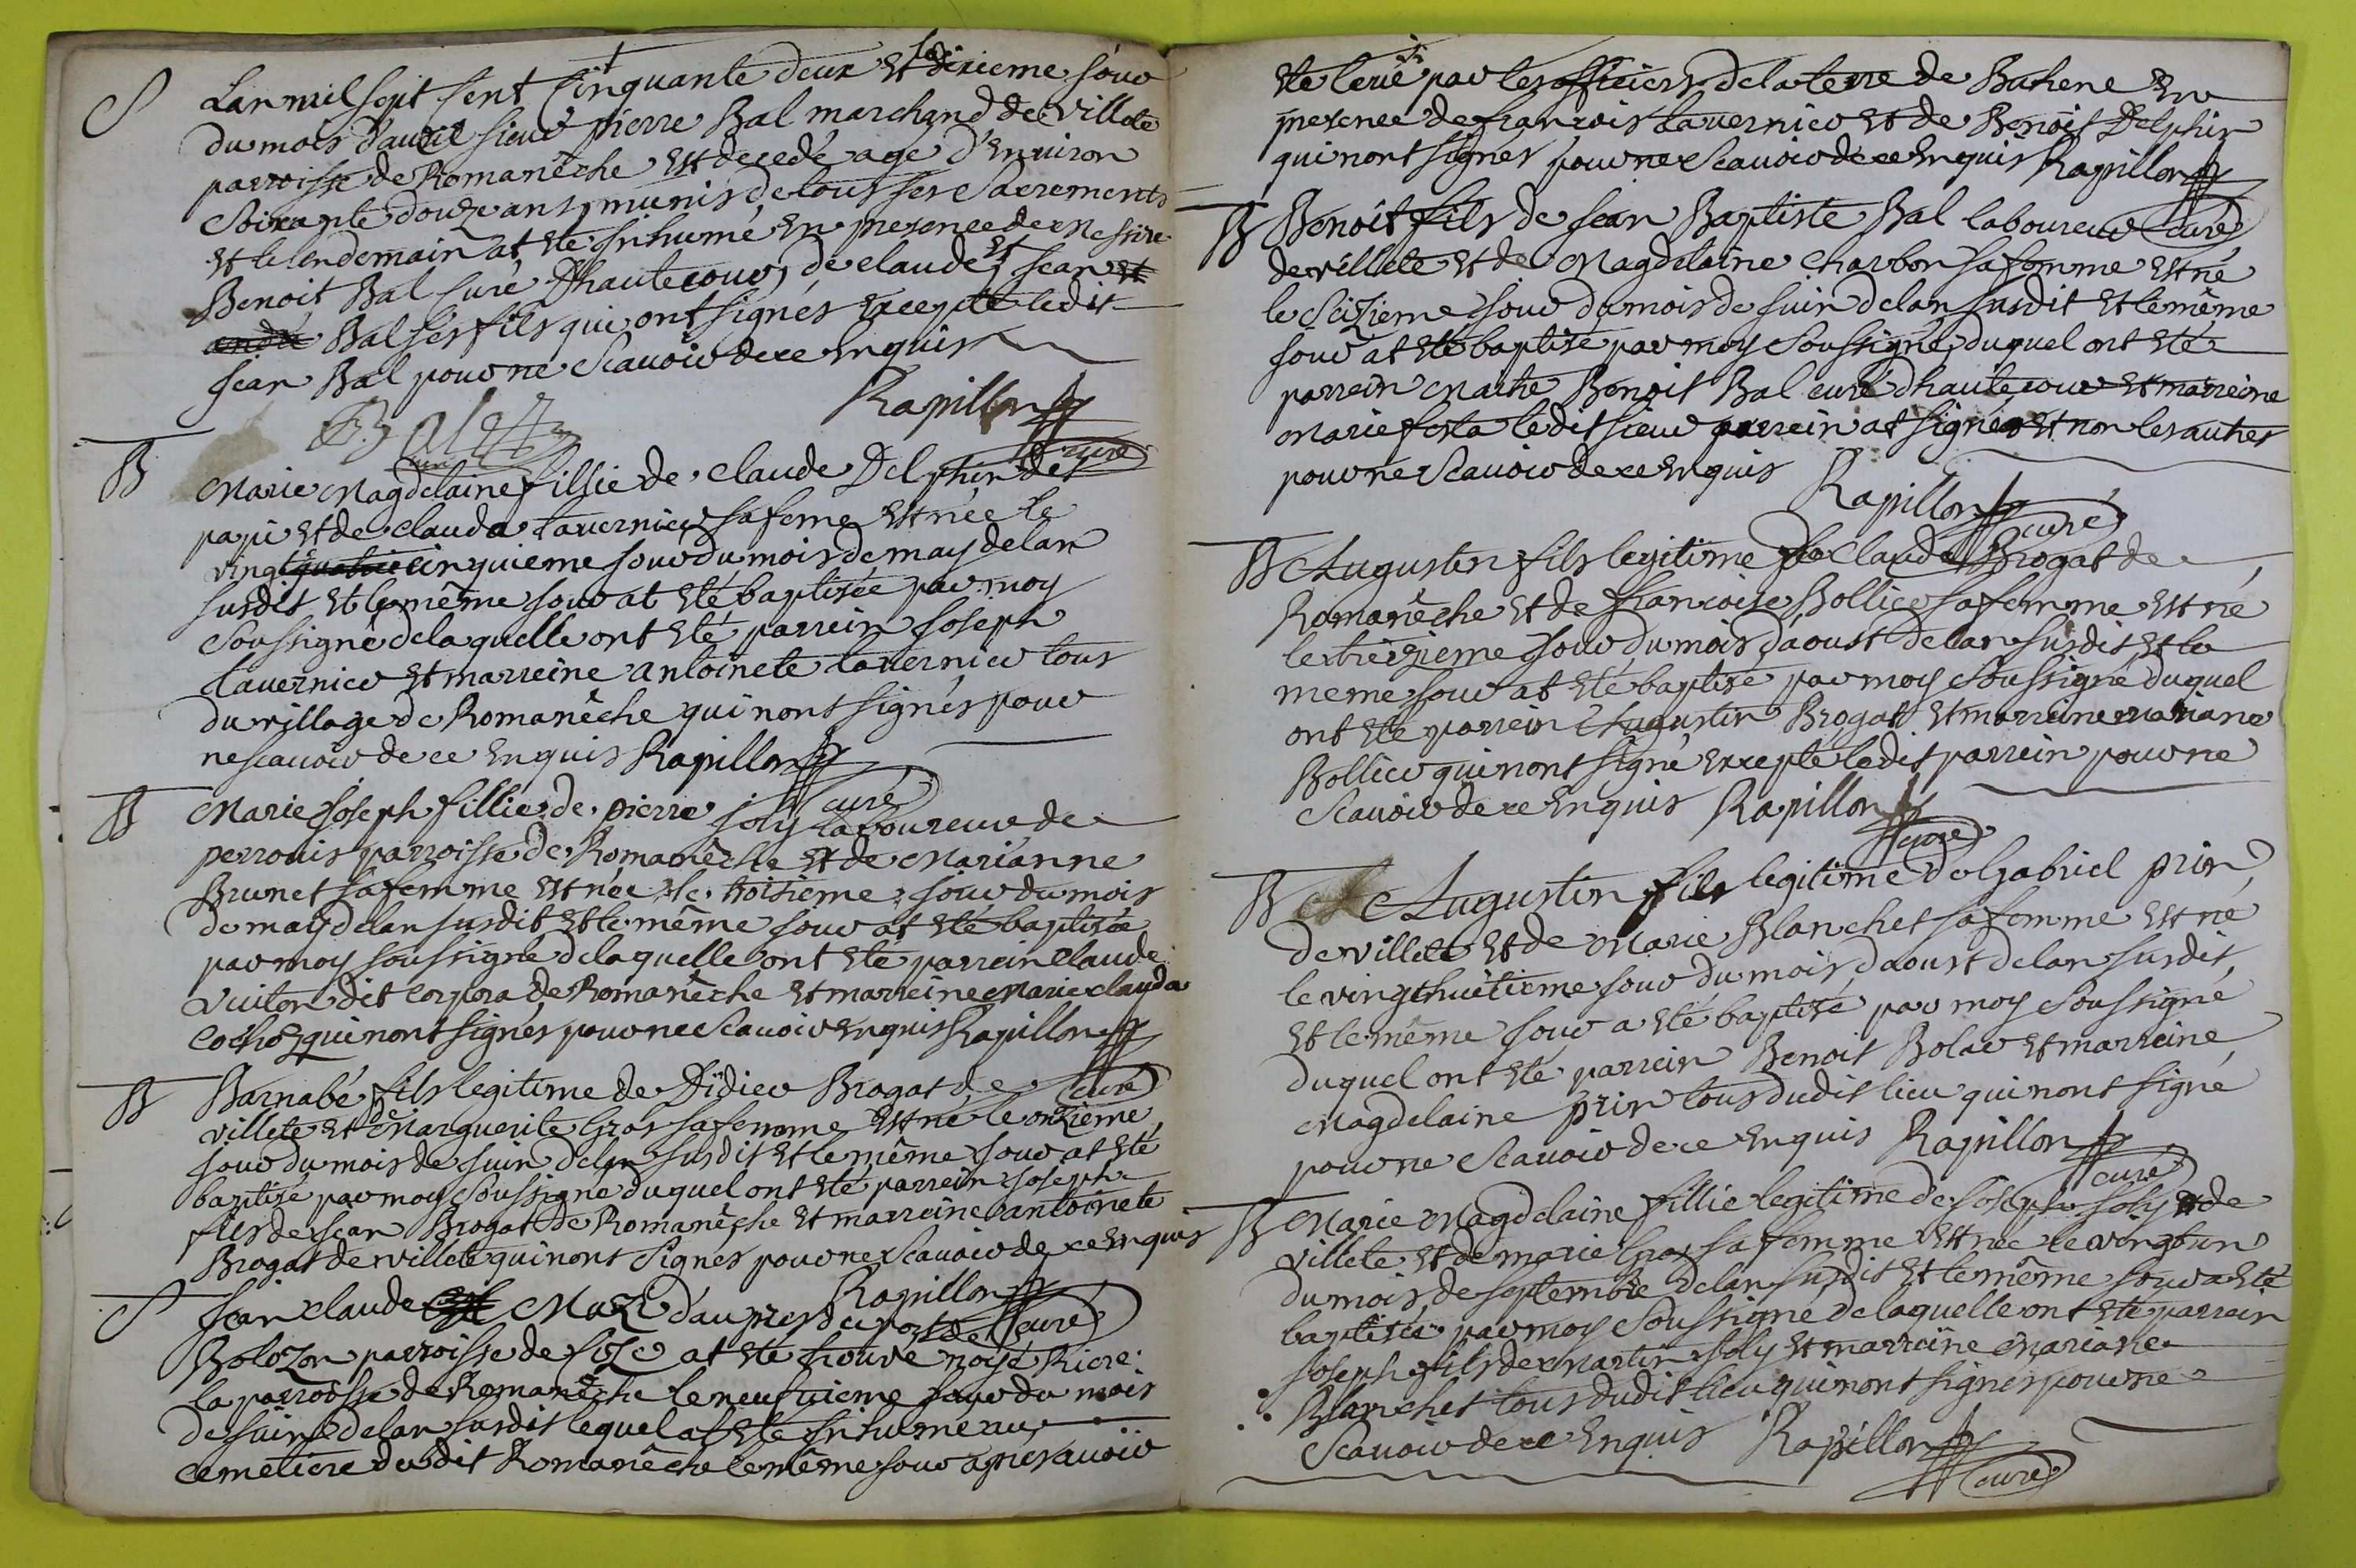 S
Lan mil sept sent Cinquante deux et le dixieme jour
du mois d'avril sieur pierre Bal marchand de villete
parroisse de Romanêche est decedé agé d'environ
Soixante douze ans, munis de tous ses Sacrements
et le lendemain at ete inhumé en presence de Messire
Benoit Bal Curé Dhautecour, de claude et jean et
andré Bal ses fils qui ont signés excepté ledit
jean Bal pour ne Scavoir de ce enquis
Bal Rapillon
curé curé
B
Marie Magdelaine fillie de claude Delphin de
papi et de clauda tavernier sa feme est née le
vingt quatrie cinquieme jour du mois de may de lan
susdit et le même jour at eté baptisée par moy
Soussigné de laquelle ont eté parrein joseph
tavernier et marreine antoinete tavernier tous
du village de Romanêche qui nont signés pour
ne scavoir de ce enquis Rapillon
curé
B
Marie joseph fillie de pierre joly laboureur de
perrouis parroisse de Romanêche et de Marianne
Brunet sa femme est née le troisieme jour du mois
de may de lan susdit et le même jour at eté baptisée
par moy soussigné de laquelle ont eté parrein claude
vuiton dit corpora de Romanêche et marreine Marie clauda
cochoz qui nont signés pour ne Scavoir enquis Rapillon
curé
B
Barnabé fils legitime de Didier Brogat de
villete et de Marguerite Gras sa femme est né le onzieme
jour du mois de juin de lan susdit et le même jour at eté
baptisé par moy soussigné duquel ont eté parrein joseph
fils de jean Brogat de Romanêche et marreine antoinete
Brogat de villete qui nont signés pour ne Scavoir de ce enquis
Rapillon
curé
S
jean claude Maz d'aupres du port de
Bolozon parroisse de at eté trouvé noyé Riere
la parroisse de Romanêche le neufvieme jour du mois
de juin de lan susdit lequel at eté inhumé au
cemetiere dudit Romanêche le même jour apres avoir
ete levé par les officiers de la terre de Buhene en
presence de francois tavernier et de Benoit Delphin
qui nont signés pour ne Scavoir de ce enquis Rapillon
curé
B
Benoit fils de jean Baptiste Bal laboureur
de villete et de Magdelaine charbon sa femme est né
le Seizieme jour du mois de juin de lan susdit et le même
jour at eté baptisé par moy Soussigné, duquel ont eté
parrein Maitre Benoit Bal curé dhautecour et marreine
Marie ledit sieur parrein at signé et non les autres
pour ne Scavoir de ce enquis
Rapillon
curé
B
Augustin fils legitime de Claude Brogat de
Romanêche et de francoise Bollier sa femme est né
le treizieme jour du mois daoust de lan susdit et le
meme jour at eté baptisé par moy Soussigné duquel
ont eté parrein Augustin Brogat et marreine mariane
Bollier qui nont signé excepté ledit parrein pour ne
Scavoir de ce enquis Rapillon
curé
B
Augustin fils legitime de Gabriel prin
de villete et de Marie Blanchet sa femme est né
le vingthuitieme jour du mois daoust de lan susdit
et le même jour a eté baptisé par moy Soussigné
duquel ont eté parrein Benoit Bolar et marreine
Magdelaine prin tous dudit lieu qui nont signé
pour ne Scavoir de ce enquis Rapillon
curé
B
Marie Magdelaine fillie legitime de joseph joly de
villete et de marie Gras sa femme est née le vingt un
du mois de septembre de lan susdit et le même jour a eté
baptisée par moy Soussigné de laquelle ont eté parrein
joseph fils de Martin joly et marreine Mariane
Blanchet tous dudit lieu qui nont signés pour ne
Scavoir de ce enquis Rapillon
curé